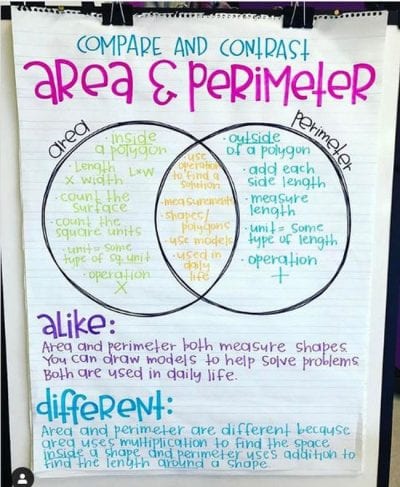 COMPARE AND CONTRAST
aRea & PeRiMeteR
area
perimeter
• inside
a polygon
• Length
x width LxW
• count the
surface
• count the
square units
• unit = some
type of sq. unit
• operation
x
• use
operation
to find a
solution
• measurements
• shapes/
polygons
• use models
• used in
daily
life
• outside
of a polygon
• add each
side length
• measure
length
• unit = some
type of length
• operation
+
aLike:
Area and perimeter both measure shapes.
You can draw models to help solve problems.
Both are used in daily life.
diffeReNt:
Area and perimeter are different because
area uses multiplication to find the space
inside a shape, and perimeter uses addition to
find the length around a shape.